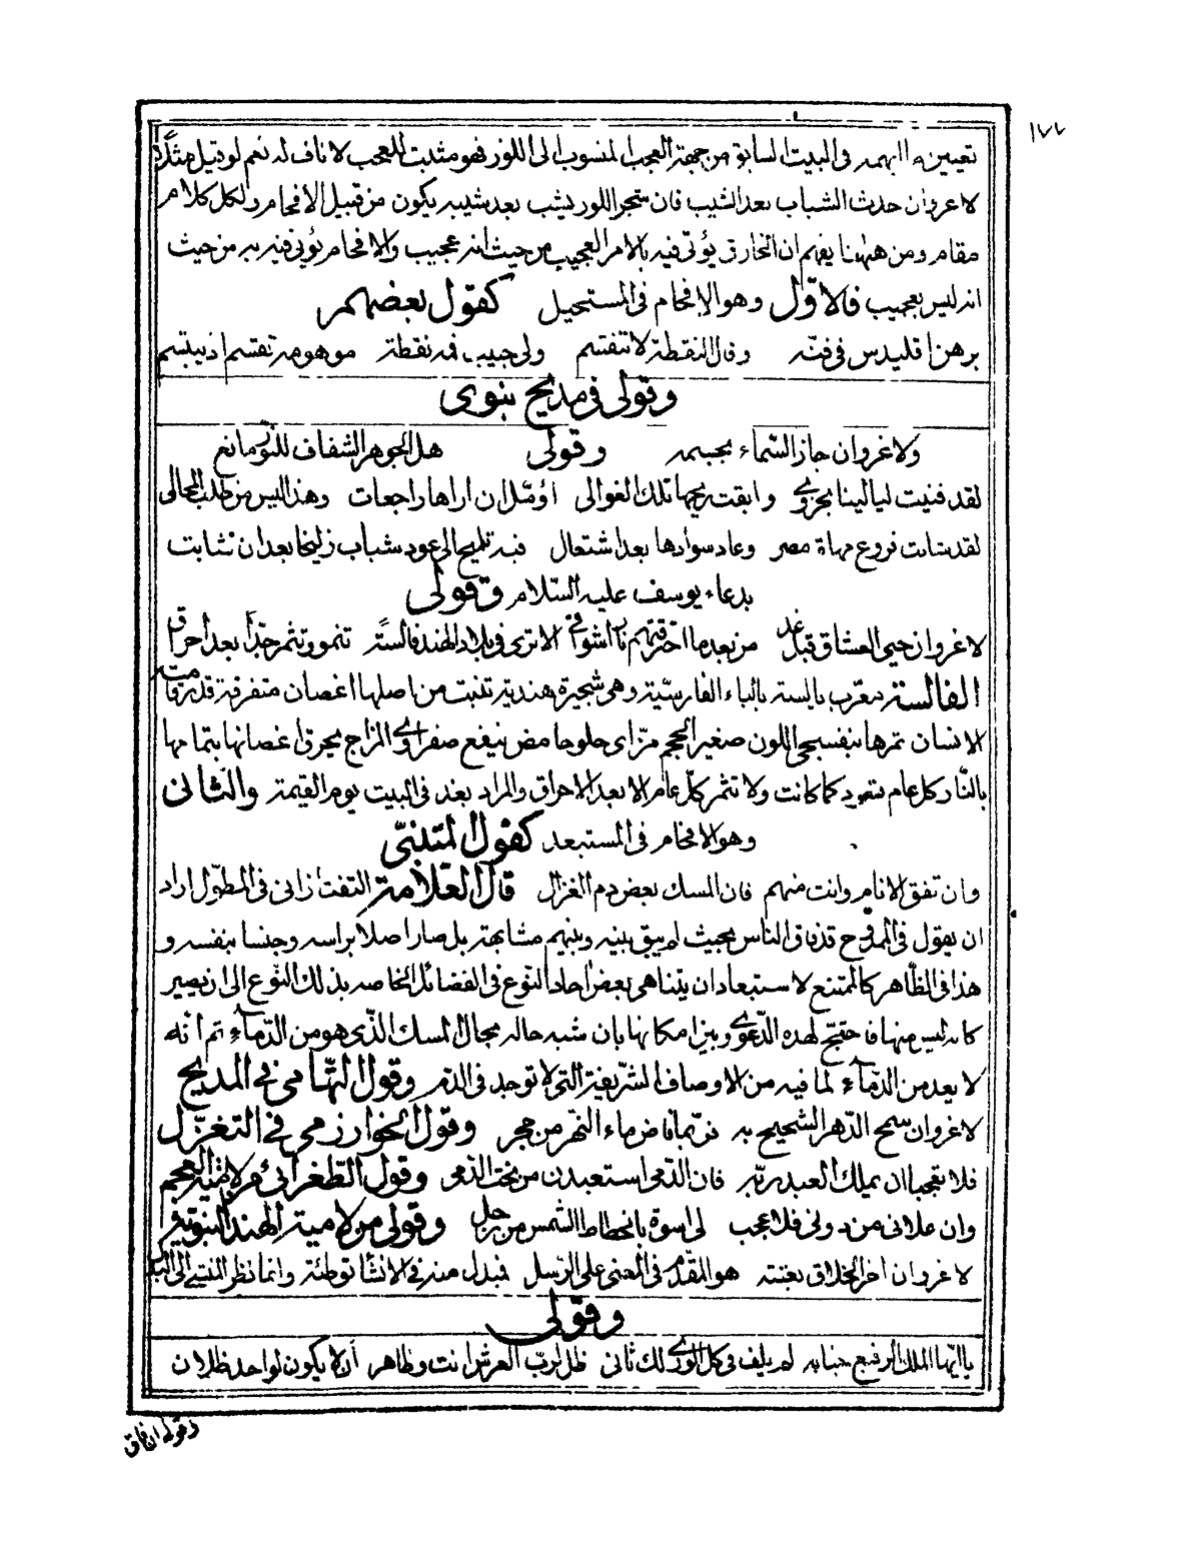 ١٧٧
تعيين ما ابهمه فى البيت السابق من جهة العجب المنسوب الى اللوز فهو مثبت للعجب لا ناف له نعم لو قيل مثلًا
لا غرو ان حدث الشباب بعد الشيب فان شجر اللوز يشب بعد شيبه يكون من قبيل الافحام ولكل كلام
مقام ومن ههنا يفهم ان الخارق يؤتى فيه بالامر العجيب من حيث انه عجيب والافحام يؤتى فيه به من حيث
انه ليس بعجيب فالاوّل وهو الافحام فى المستحيل كقول بعضهم
برهن اقليدس فى فنّه وقال النقطة لا تنقسم ولى حبيب فمه نقطة موهومة تقسم اذ يبتسم
وقولى فى مديح نبوى
ولا غرو ان جاز السّماء بجسمه وقولى هل الجوهر الشفاف للنور مانع
لقد فنيت ليالينا بحزوى وابقت ريحها تلك الغوالى اؤمّل ان اراها راجعات وهذا ليس من طلب المحال
لقد شابت فروع مهاة مصر وعاد سوادها بعد اشتعال فيه تلميح الى عود شباب زليخا بعد ان شابت
بدعاء يوسف عليه السّلام وقولى
لا غرو ان حيى العشاق قبل غد من بعد ما احترقتهم نار اشواق الا ترى فى بلاد الهند فالسةً تنمو وتثمر جدّا بعد احراق
الفالسة معرب پالسه بالباء الفارسيّة وهى شجيرة هندية تنبت من اصلها اغصان متفرقة قدر قامة
الانسان ثمرها بنفسجى اللون صغير الحجم مزّ اى حلو حامض ينفع صفراوى المزاج يحرق اغصانها بتمامها
بالنّار كل عام فتعود كما كانت ولا تثمر كلّ عام الا بعد الاحراق والمراد بغد فى البيت يوم القيمة والثّانى
وهو الافحام فى المستبعد كقول المتنبّى
وان تفق الانام وانت منهم فان المسك بعض دم الغزال قال العلّامة التفتازانى فى المطوّل اراد
ان يقول فى الممدوح قد فاق الناس بحيث لم يبق بينه وبينهم مشابهة بل صار اصلا براسه وجنسا بنفسه و
هذا فى الظّاهر كالممتنع لاستبعاد ان يتناهى بعض احاد النّوع فى الفضائل الخاصه بذلك النّوع الى ان يصير
كانه ليس منها فاحتج لهذه الدّعوى وبين امكانها بان شبه حاله بحال المسك الذّى هو من الدّماء ثم انّه
لا يعد من الدّماء لما فيه من الاوصاف الشّريفة التى لا توجد فى الدّم وقول التّهامى فى المديح
لا غرو ان سمح الدّهر الشحيح به فربّما فاض ماء النّهر من حجر وقول الخوارزمى فى التغزّل
فلا تعجبا ان يملك العبد ربّه فان الدّمى استعبدن من نحت الدّمى وقول الطّغرائى فى لامية العجم
وان علانى من دونى فلا عجب لى اسوة بانحطاط الشّمس من زحل وقولى من لامية الهند النبويّة
لا غرو ان اخر الخلاق بعثته هو المقدّم فى المعنى على الرّسل فبدل منه فى الانشا توطئة وانما نظر المنشى الى البدل
وقولى
يا ايّها الملك الرفيع جنابه لم يلف فى كل الورى لك ثانى ظل لربّ العرش انت وظاهر ان لا يكون لواحد ظلان
وقوله ان فاق